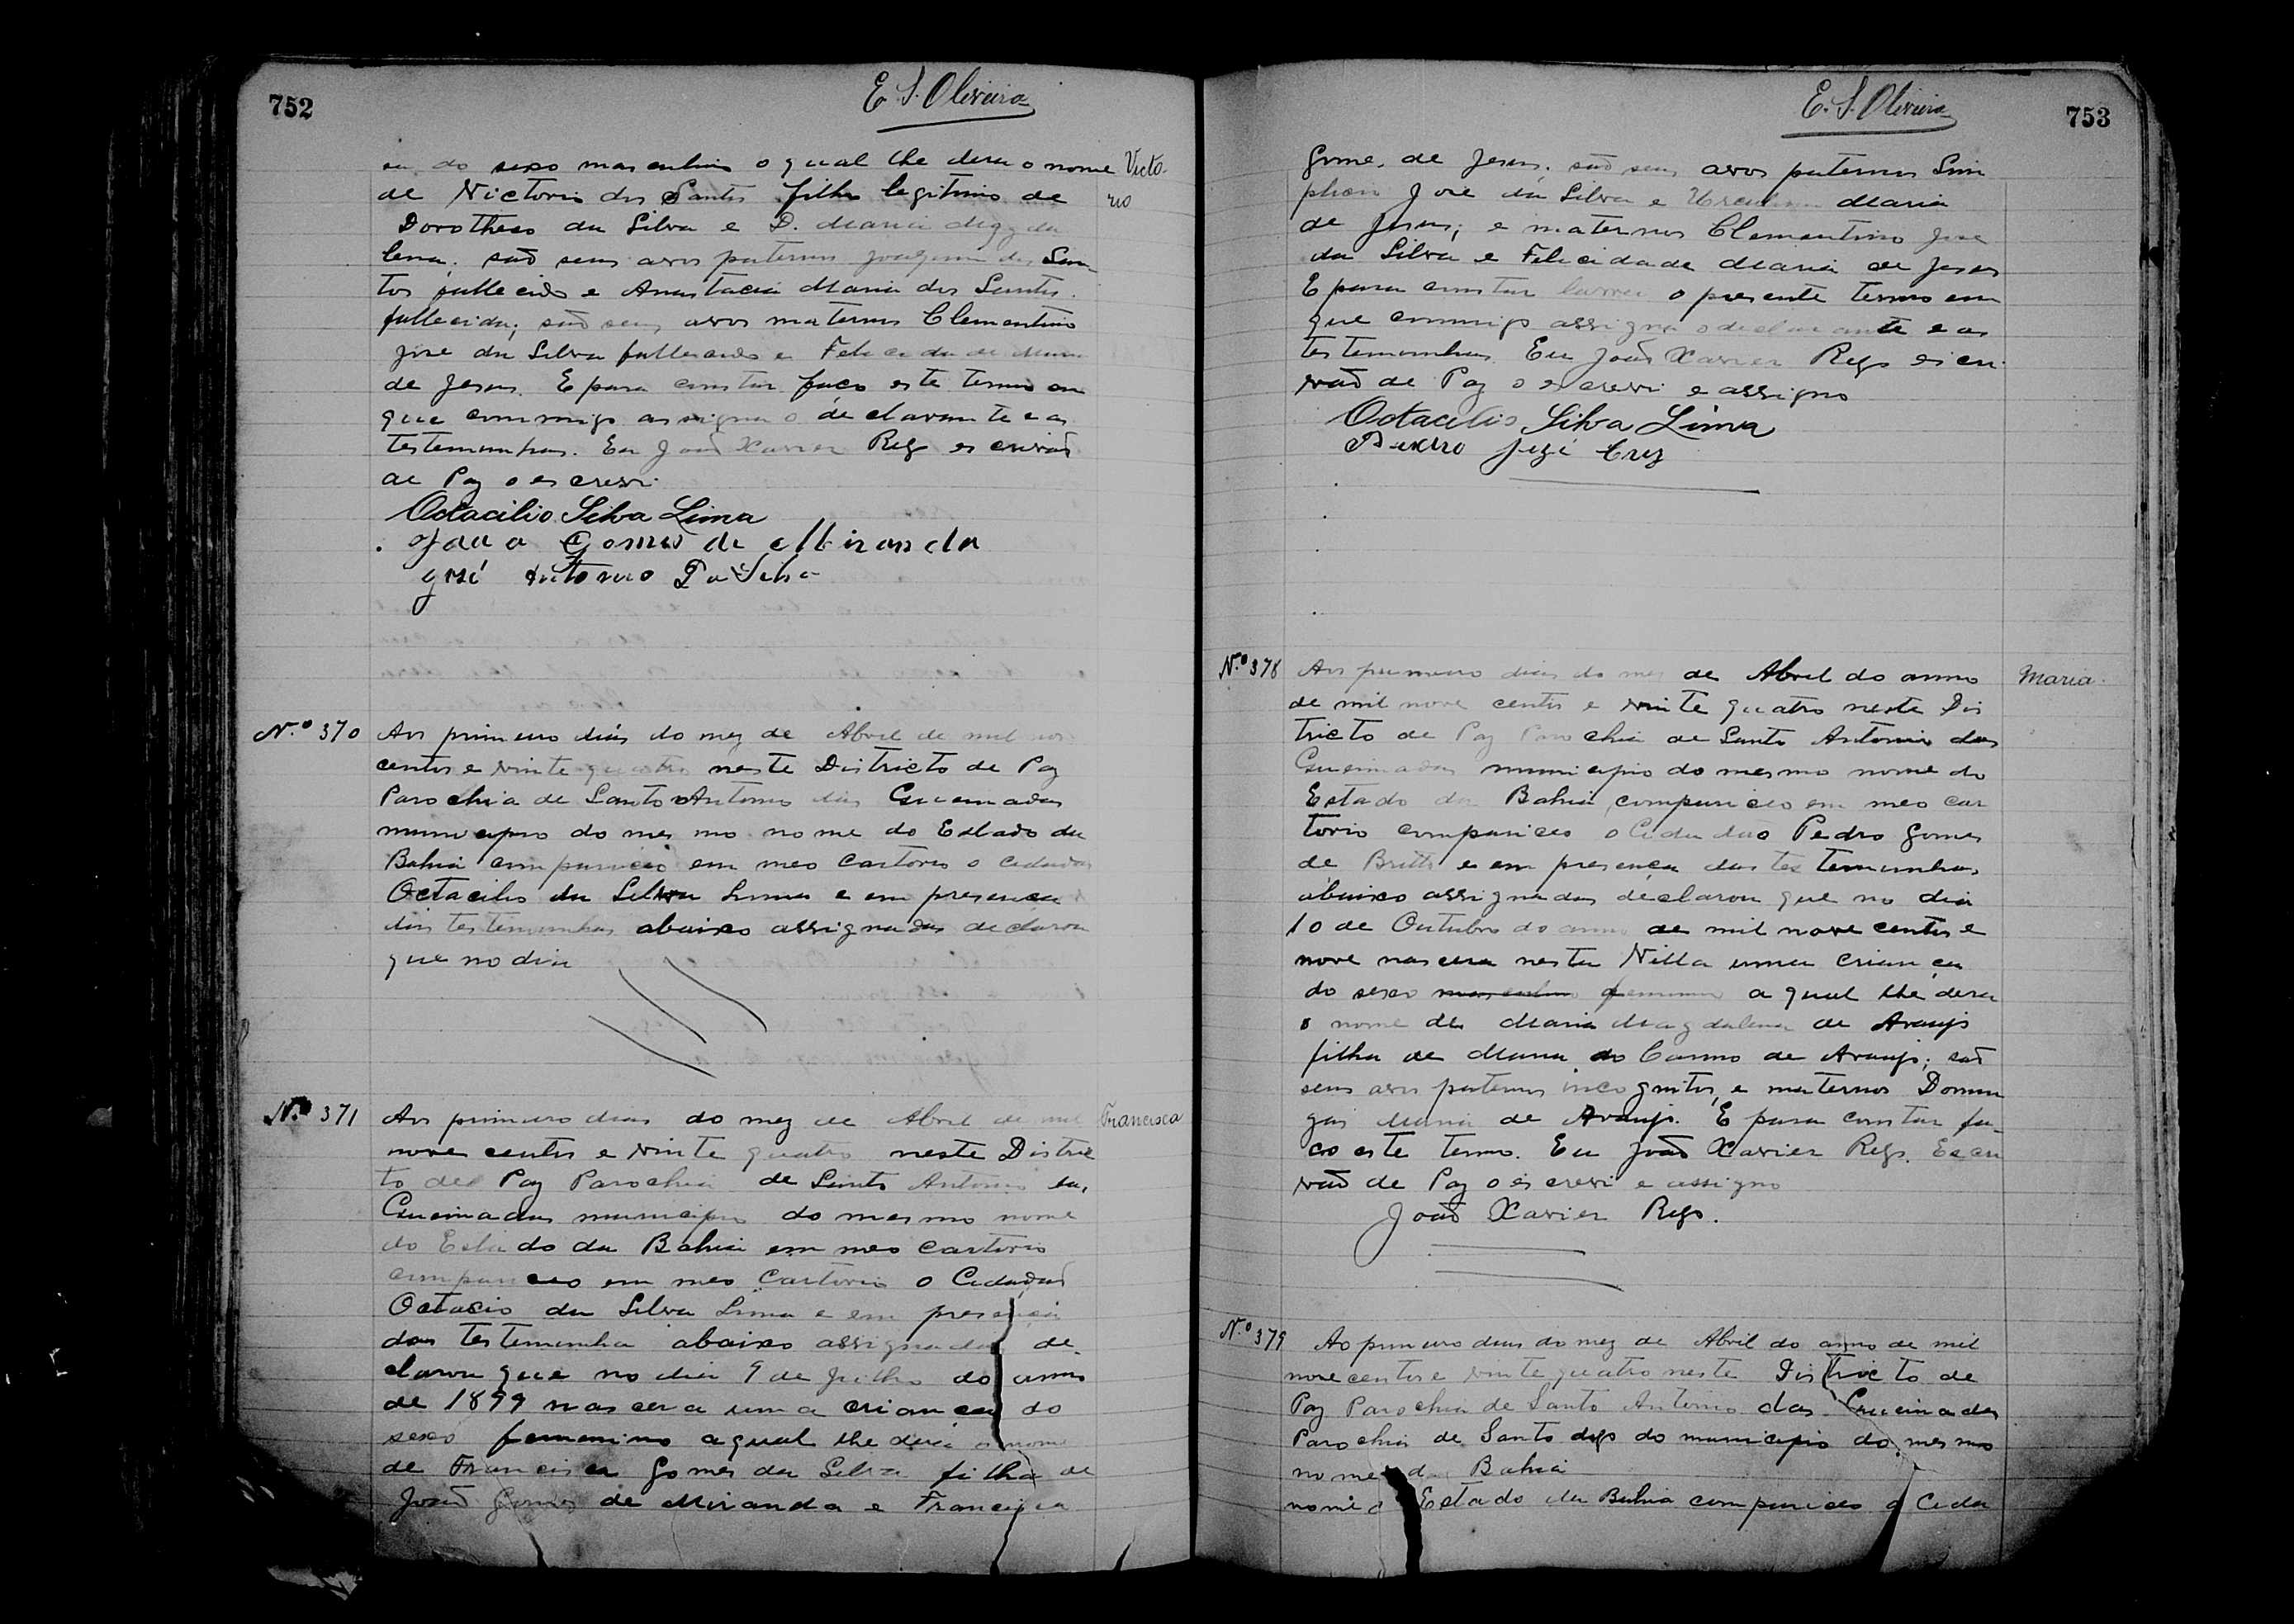 752
E. S. Oliveira
ça do sexo masculino o qual lhe dera o nome
Victo-
rio
de Victorio dos Santos filho legitimo de
Dorotheo da Silva e D. Maria Magda
lena. são seus avos paternos Joaquim dos San-
tos fallecido e Anastacia Maria dos Santos
fallecida; são seus avos maternos Clementino
José da Silva fallecido e Felicidade Maria
de Jesus. E para constar faço este termo em
que commigo assigna o declarante e as
testemunhas. Eu João Xavier Rego escrivão
de Paz o escrevi.
Octacilio Silva Lima
João Gomes de Miranda
José Antonio Da Silva
N.º 370
Aos primeiro dias do mez de Abril de mil nove
centos e vinte quatro neste Districto de Paz
Parochia de Santo Antonio das Queimadas
municipio do mesmo nome do Estado da
Bahia compareceo em meo cartorio o cidadão
Octacilio da Silva Lima e em presença
das testemunhas abaixo assignadas declarou
que no dia
N.º 371
Francisca
Aos primeiro dias do mez de Abril de mil
nove centos e vinte quatro neste Distric
to de Paz Parochia de Santo Antonio das
Queimadas municipio do mesmo nome
do Estado da Bahia em meo cartorio
compareceo em meo Cartorio o Cidadão
Octacio da Silva Lima e em presença
das testemunha abaixo assignadas de-
clarou que no dia 9 de Julho do anno
de 1899 nascera uma criança do
sexo femenino a qual lhe dera o nome
de Francisca Gomes da Silva filha de
João Gomes de Miranda e Francisca
753
E. S. Oliveira
Gome. de Jesus. são seus avos paternos Sim
phon José da Silva e Ursulina Maria
de Jesus; e maternos Clementino José
da Silva e Felicidade Maria de Jesus
E para constar lavrei o presente termo em
que commigo assigna o declarante e as
testemunhas. Eu João Xavier Rego escri-
vão de Paz o escrevi e assigno
Octacilio Silva Lima
Pedro José Cruz
N.º 378
Maria
Aos primeiro dias do mez de Abril do anno
de mil nove centos e vinte quatro neste Dis
tricto de Paz Parochia de Santo Antonio das
Queimadas municipio do mesmo nome do
Estado da Bahia, compareceo em meo car
torio compareceo o Cidadão Pedro Gomes
de Britto e em presença das tes temunhas
abaixo assignadas declarou que no dia
10 de Outubro do anno de mil nove centos e
nove nascera nesta Villa uma criança
do sexo masculino femenino a qual lhe dera
o nome de Maria Magdalena de Araujo
filha de Maria do Carmo de Araujo; são
seus avos paternos incognitos, e maternos Domin
gas Maria de Araujo. E para constar fa-
ço este termo. Eu João Xavier Rego. Escri
vão de Paz o escrevi e assigno
João Xavier Rego.
N.º 379
Ao primeiro dias do mez de Abril do anno de mil
nove centos e vinte quatro neste Districto de
Paz Parochia de Santo Antonio das Queimadas
Parochia de Santo digo do municipio do mesmo
nome da Bahia
nome Estado da Bahia compareceo o Cida